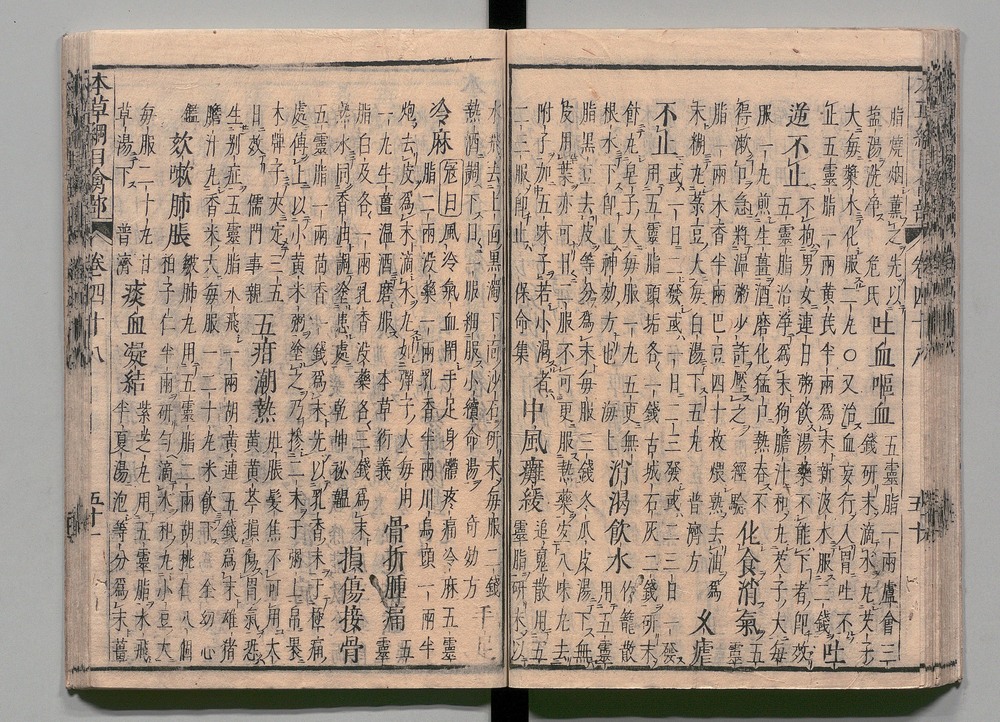 脂燒烟薰之先以
鹽湯洗淨 危氏 吐血嘔血 五靈脂一兩盧會三
錢研末滴水丸芡子
大每漿水化服二丸〇又治血妄行入胃吐不
止五靈脂一兩黃芪半兩爲末新汲水服二錢 吐
逆不止 不拘男女連日粥飲湯藥不能下者即效
五靈脂治淨爲末狗膽汁和丸芡子大每
服一丸煎生薑酒磨化猛口熱吞不
得漱口急將溫粥少許壓之 經驗 化食消氣 五靈
脂一兩木香半兩巴豆四十枚煨熟去油爲
末糊丸菉豆大每白湯下五丸 普濟方 久瘧
不止 或一日二發或一日二三發或二三日一發
用五靈脂頭垢各一錢古城石灰二錢研末
飯丸皁子大每服一丸五更無
根水下即止神效方也 海上 消渴飲水 竹籠散
用五靈
脂黑豆去皮等分爲末每服三錢冬瓜皮湯下無
皮用葉亦可日二服不可更服熱藥宜八味丸去
附子加五味子若小渴者
二三服即止 保命集 中風癱緩 追魂散用五
靈脂研末以
水飛去上面黑濁下面沙石研末每服二錢
熱酒調下日一服繼服小續命湯 奇効方 手足
冷麻 寇曰風冷氣血閉手足身體疼痛冷麻五靈
脂二兩沒藥一兩乳香半兩川烏頭一兩半
炮去皮爲末滴水丸如彈子大每用
一丸生薑溫酒磨服 本草衍義 骨折腫痛 五靈
脂白及各一兩乳香沒藥各三錢爲末
熱水同香油調塗患處 乾坤秘韞 損傷接骨
五靈脂一兩茴香一錢爲末先以乳香末于極痛
處傅上以小黃米粥塗之乃摻二末于粥上帛裹
木牌子夾定三五
日效 儒門事親 五疳潮熱 肚脹髮焦不可用大
黃黃芩損傷胃氣恐
生別症五靈脂水飛一兩胡黃連五錢爲末雄猪
膽汁丸黍米大每服一二十丸米飲下 全幼心
鑑 欬嗽肺脹 皺肺丸用五靈脂二兩胡桃仁八個
柏子仁半兩研勻滴水和丸小豆大
每服二十丸甘
草湯下 普濟 痰血凝結 紫芝丸用五靈脂水飛
半夏湯泡等分爲末薑
本草綱目禽部 卷四十八 五十一